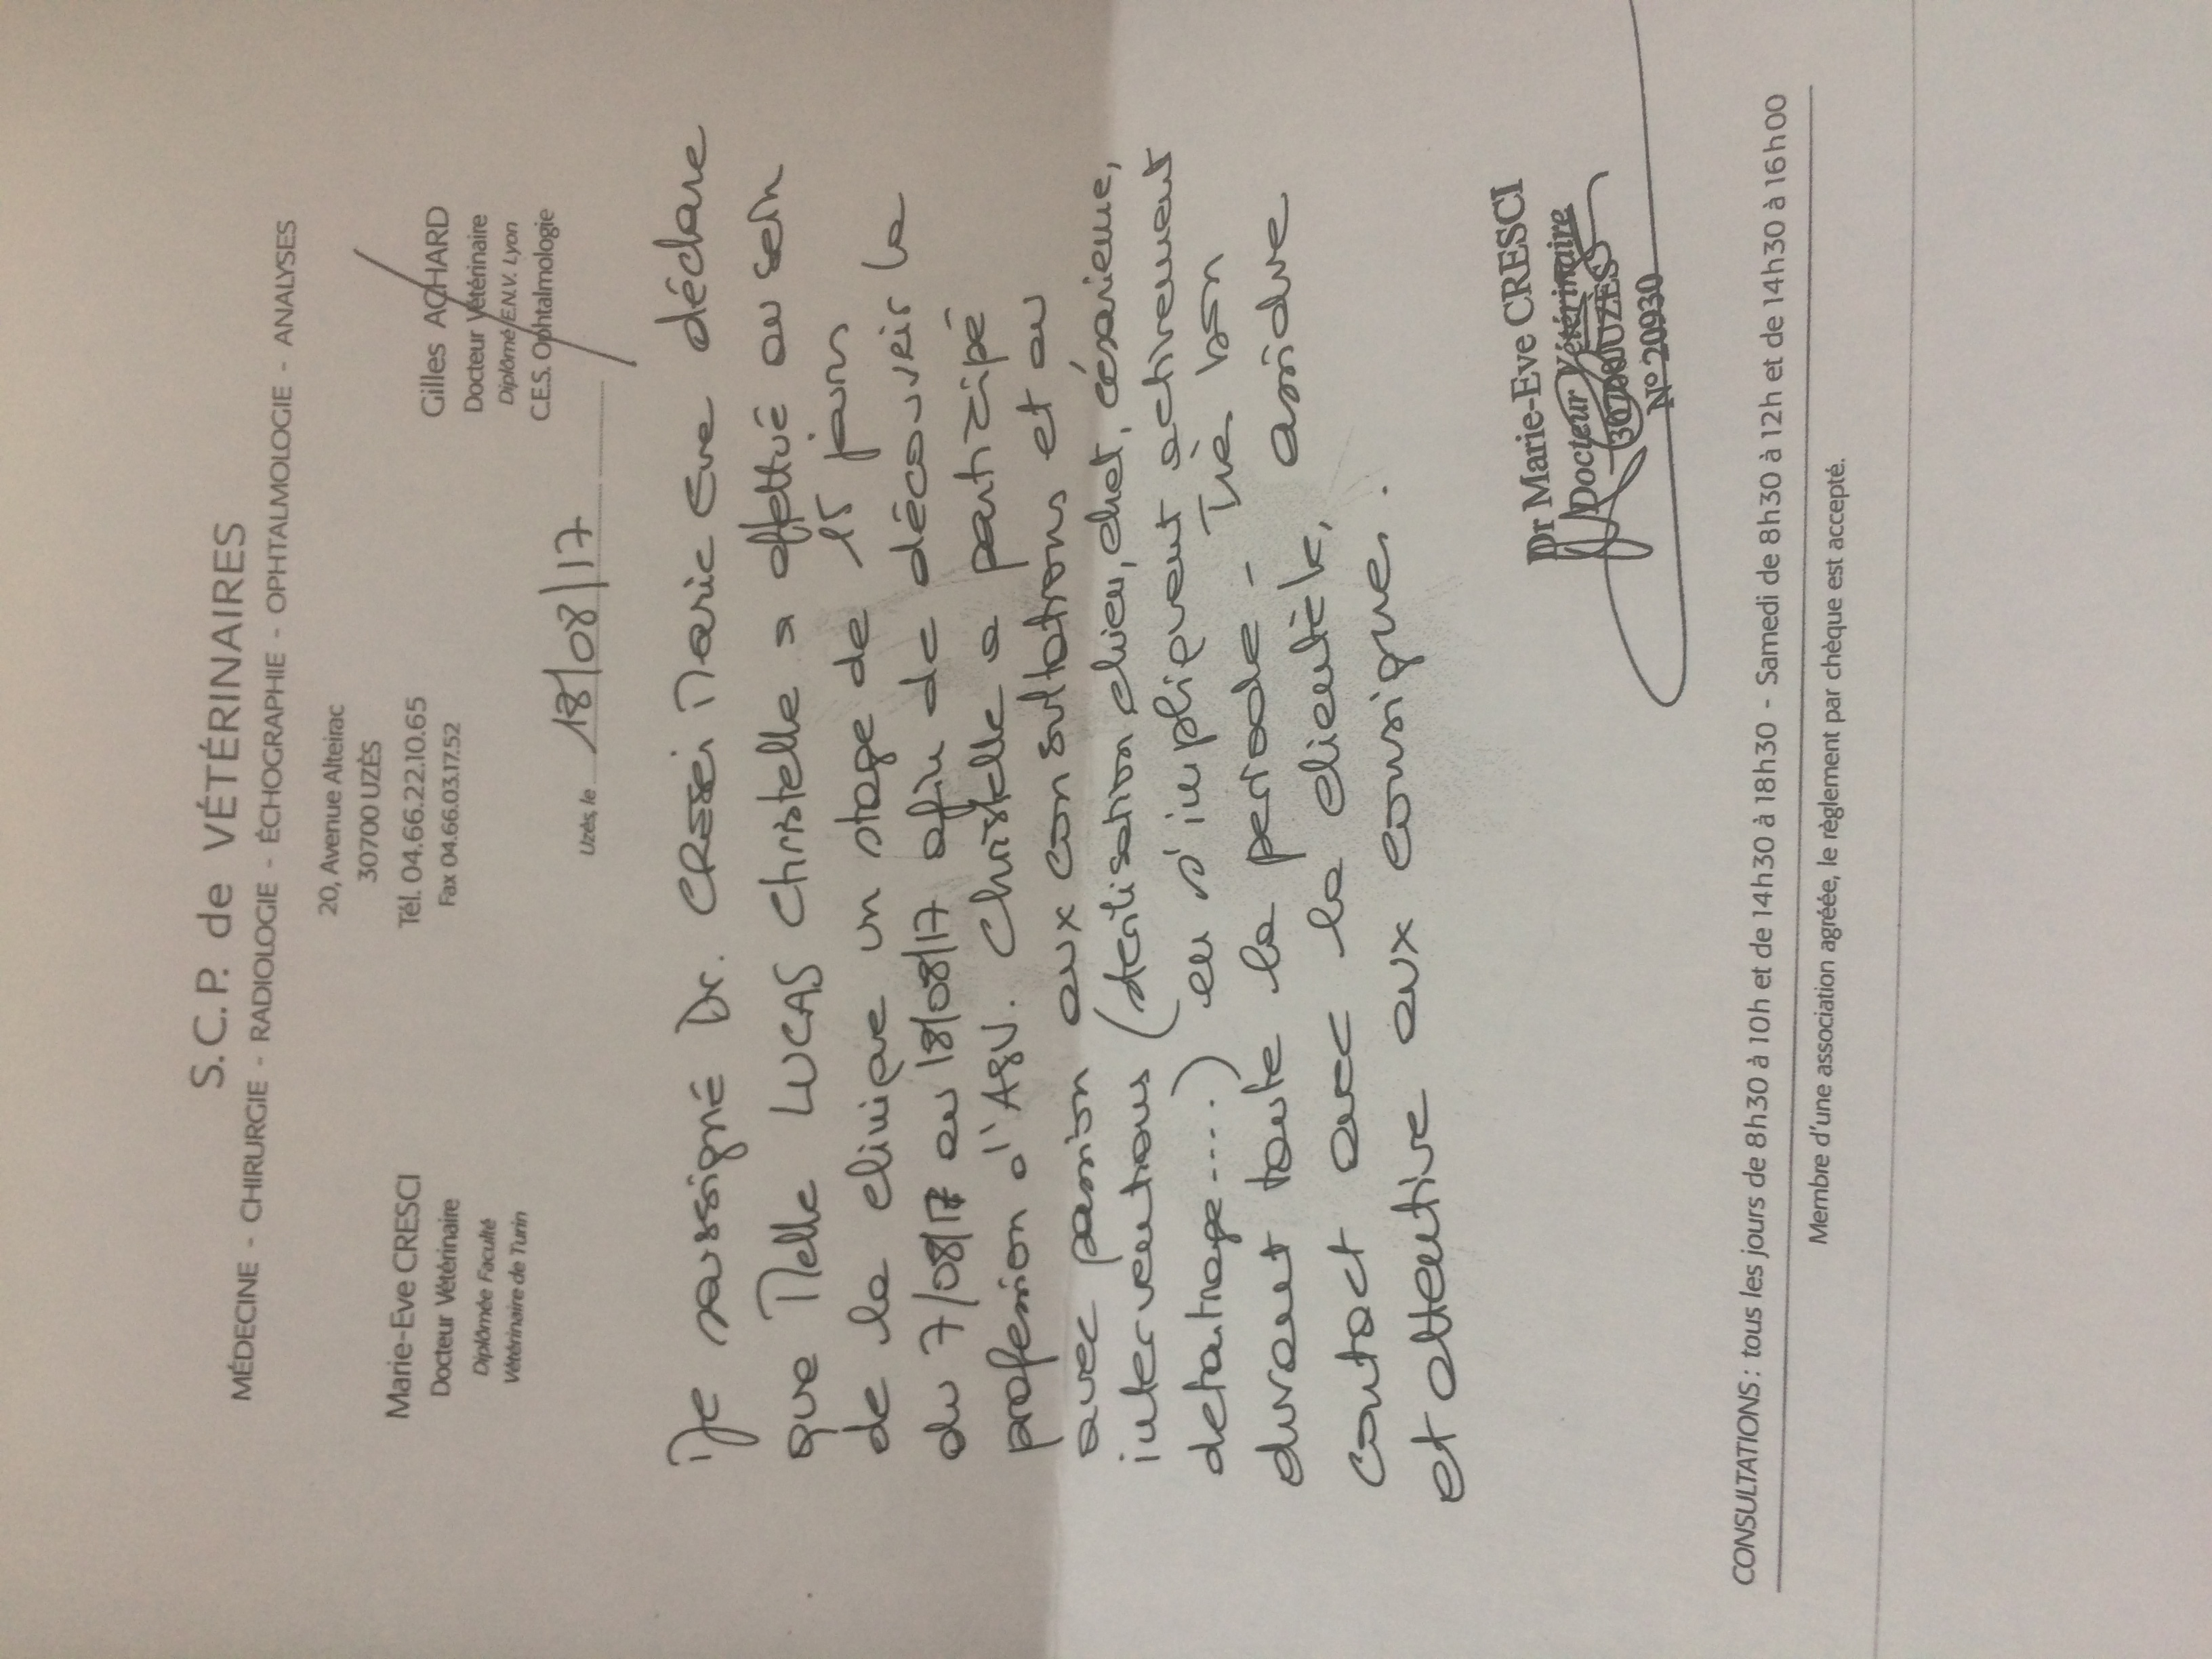 S.C.P. de VÉTÉRINAIRES
MÉDECINE - CHIRURGIE - RADIOLOGIE - ÉCHOGRAPHIE - OPHTALMOLOGIE - ANALYSES
20, Avenue Alteirac
30700 UZÈS
Tél. 04.66.22.10.65
Fax 04.66.03.17.52
Marie-Eve CRESCI
Docteur Vétérinaire
Diplômée Faculté
Vétérinaire de Turin
Gilles ACHARD
Docteur Vétérinaire
Diplômé E.N.V. Lyon
C.E.S. Ophtalmologie
Uzès, le 18/08/17
Je soussigné Dr. CRESCI Marie Eve déclare
que Melle LUCAS Christelle a effettué au sein
de la clinique un stage de 15 jours
du 7/08/17 au 18/08/17 afin de découvrir la
profession d'ASV. Christelle a partizipé
avec passion aux consultations et au
interventions (sterilisation chien, chat, césarienne,
detartrage....) en s'impliquant activement
durant toute la periode - Très bon
contact avec la clientèle, assidue
et attentive aux consignes.
Dr Marie-Eve CRESCI
Docteur Vétérinaire
30700 UZÈS
N° 20930
CONSULTATIONS : tous les jours de 8h30 à 10h et de 14h30 à 18h30 - Samedi de 8h30 à 12h et de 14h30 à 16h00
Membre d'une association agréée, le règlement par chèque est accepté.